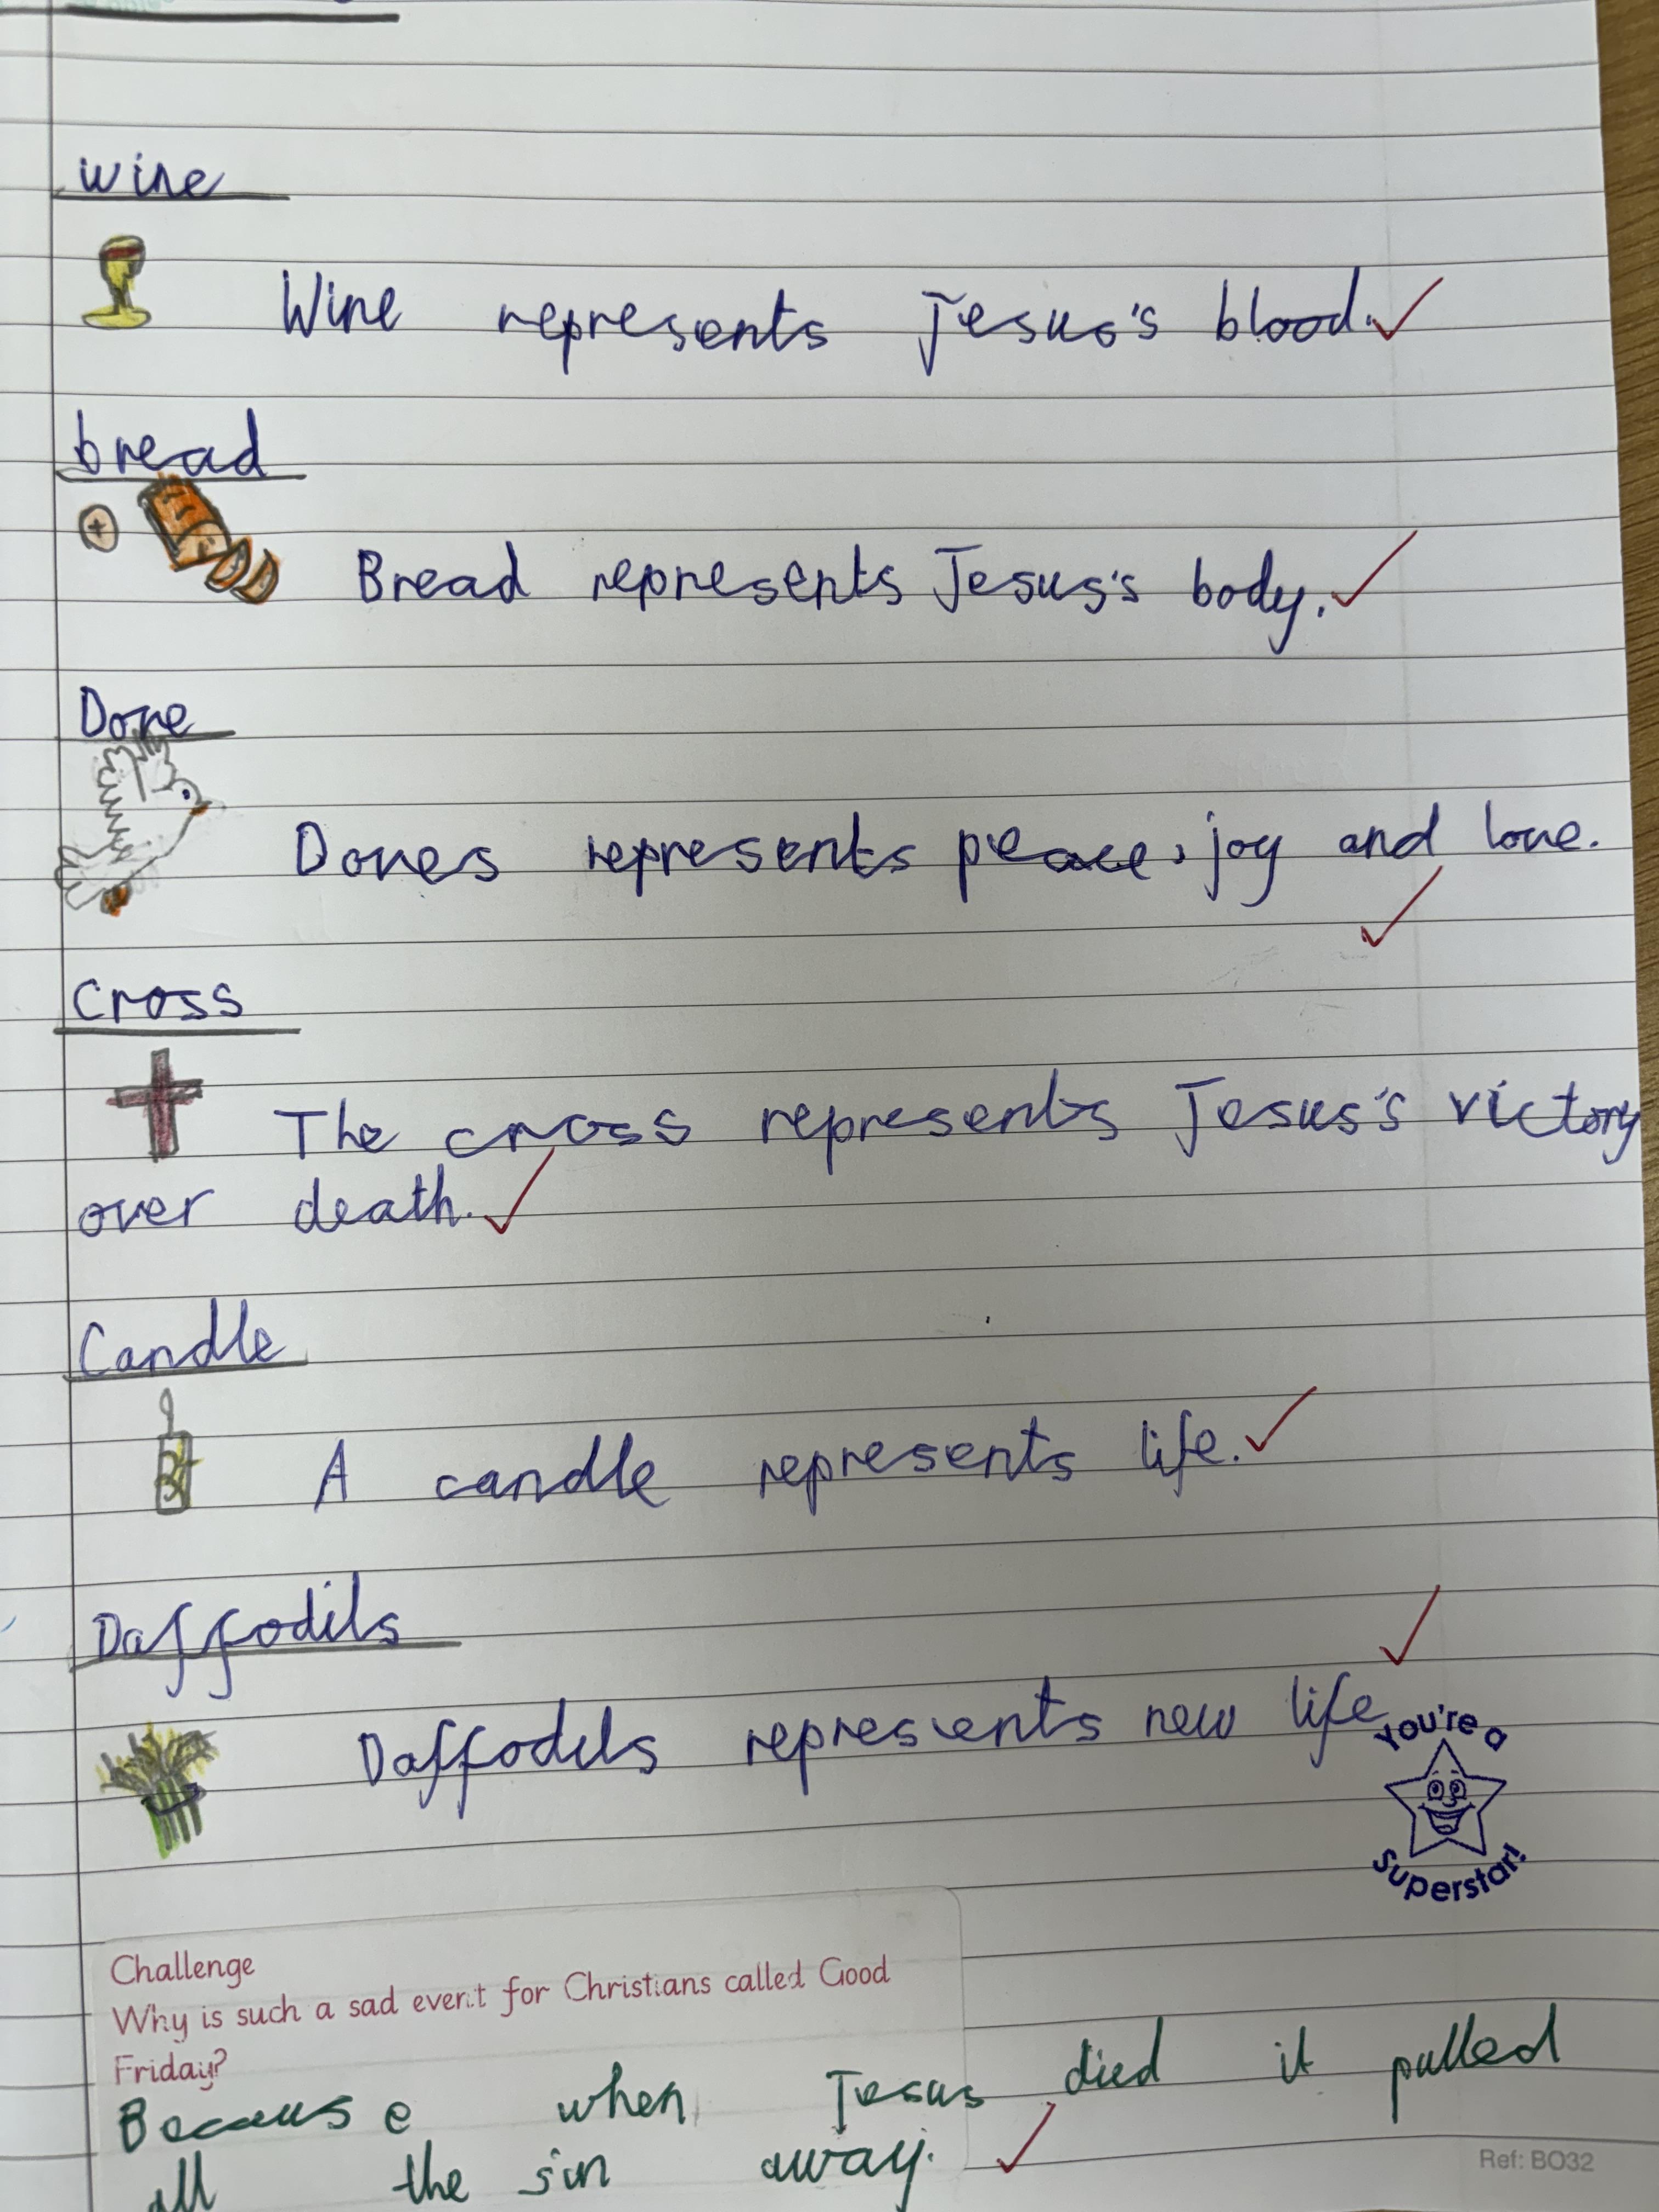 wine
Wine represents Jesus's blood.
bread
Bread represents Jesus's body.
Dove
Doves represents peace, joy and love.
Cross
The cross represents Jesus's victory
over death.
Candle
A candle represents life.
Daffodils
Daffodils represents new life
You're a
Superstar!
Challenge
Why is such a sad event for Christians called Good
Friday?
Because when Jesus died it pulled
all the sin away.
Ref: BO32